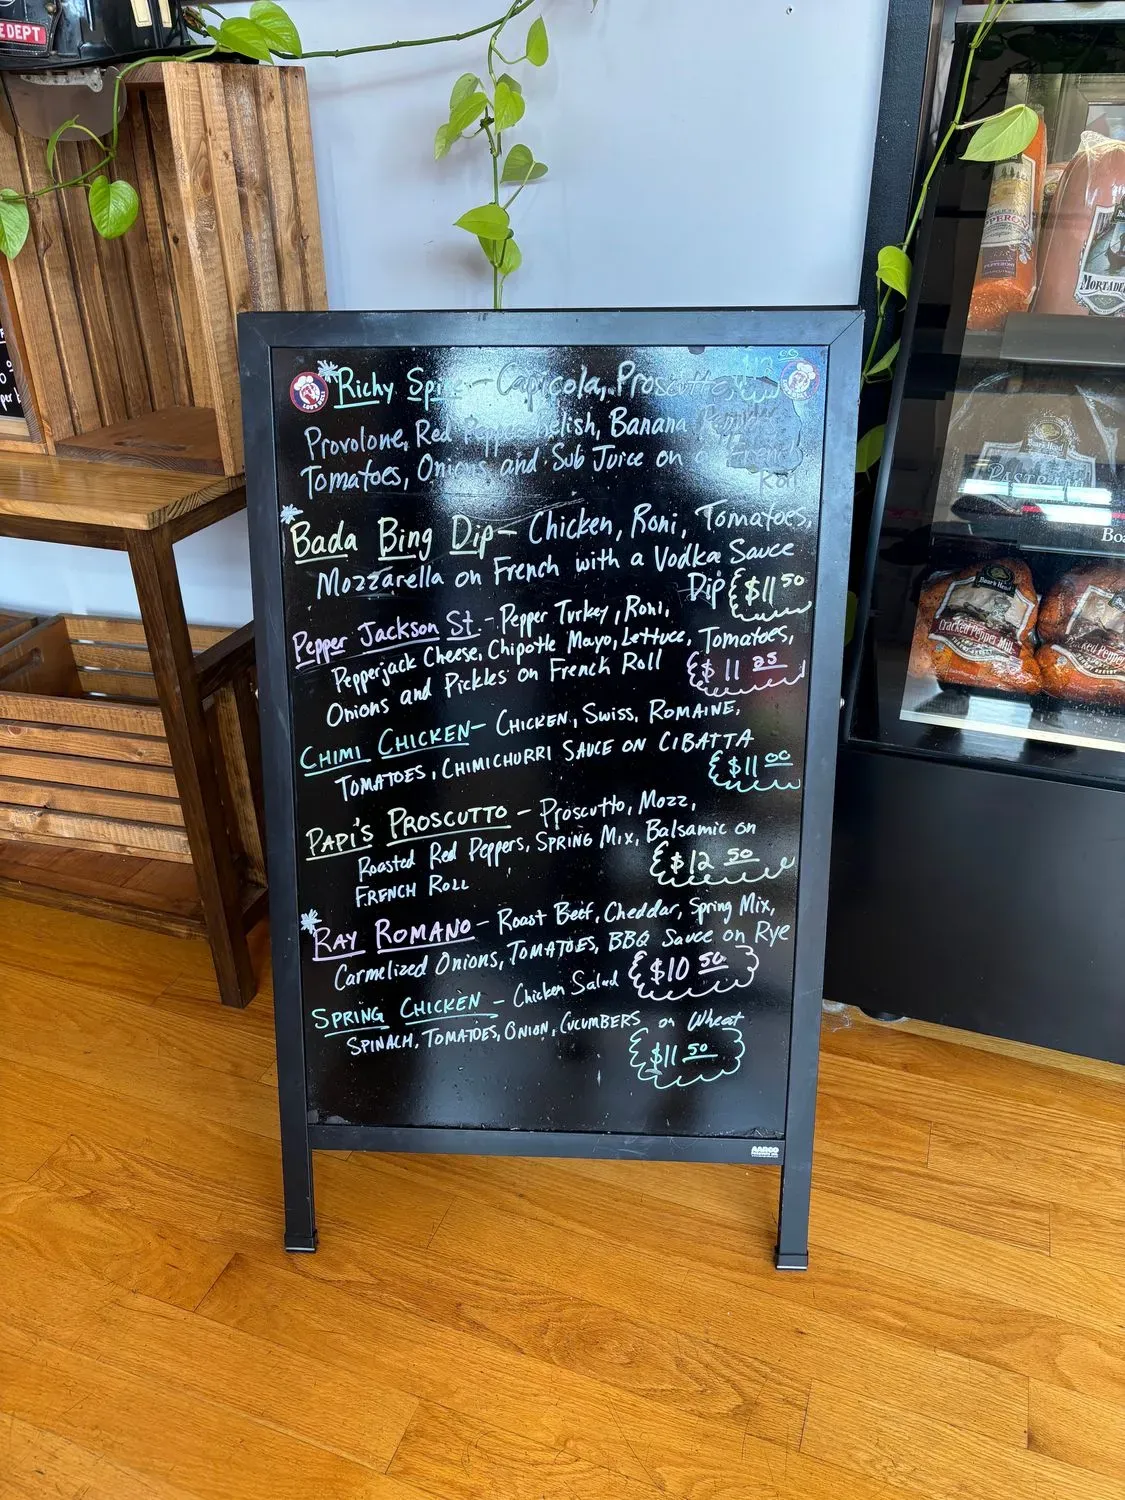 E DEPT
Richy Spice - Capicola, Prosciutto
Provolone, Red Pepper Relish, Banana Peppers
Tomatoes, Onions and Sub Juice on a French
Roll
Bada Bing Dip - Chicken, Roni, Tomatoes,
Mozzarella on French with a Vodka Sauce
Dip $11 50
Pepper Jackson St. - Pepper Turkey, Roni,
Pepperjack Cheese, Chipotle Mayo, Lettuce, Tomatoes,
Onions and Pickles on French Roll $11 25
CHIMI CHICKEN - CHICKEN, SWISS, ROMAINE,
TOMATOES, CHIMICHURRI SAUCE ON CIBATTA
$11 00
PAPI'S PROSCUTTO - Proscutto, Mozz,
Roasted Red Peppers, SPRING MIX, Balsamic on
FRENCH ROLL $12 50
RAY ROMANO - Roast Beef, Cheddar, Spring Mix,
Carmelized Onions, TOMATOES, BBQ Sauce on Rye
$10 50
SPRING CHICKEN - Chicken Salad
SPINACH, TOMATOES, ONION, CUCUMBERS on Wheat
$11 50
AARCO
MORTADE
Boar's Head
Cracked Pepper Mill